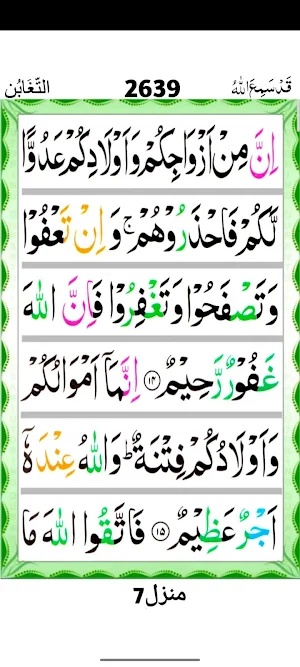 التَّغَابُن 2639 قَدْ سَمِعَ اللّٰهُ
اِنَّ مِنْ اَزْوَاجِكُمْ وَاَوْلَادِكُمْ عَدُوًّا
لَّكُمْ فَاحْذَرُوْهُمْ ۚ وَ اِنْ تَعْفُوْا
وَتَصْفَحُوْا وَتَغْفِرُوْا فَاِنَّ اللّٰهَ
غَفُوْرٌ رَّحِيْمٌ ﴿۱۴﴾ اِنَّمَاۤ اَمْوَالُكُمْ
وَاَوْلَادُكُمْ فِتْنَةٌ ؕ وَاللّٰهُ عِنْدَهٗۤ
اَجْرٌ عَظِيْمٌ ﴿۱۵﴾ فَاتَّقُوا اللّٰهَ مَا
منزل 7